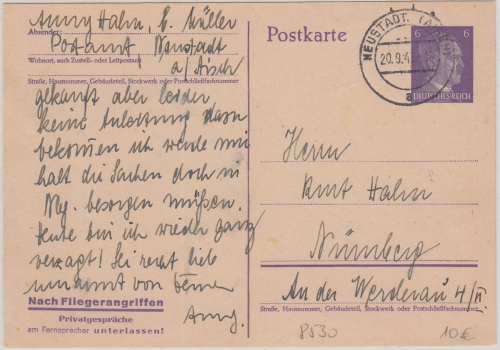 Anny Hahn, b. Müller
Absender:
Postamt Neustadt
Wohnort, auch Zustell- oder Leitpostamt
a/Aisch
Straße, Hausnummer, Gebäudeteil, Stockwerk oder Postschließfachnummer
gekauft aber leider
keine Anleitung dazu
bekommen ich werde mir
halt die Sachen doch in
Nbg. besorgen müßen.
Heute bin ich wieder ganz
verzagt! Sei recht lieb
umarmt von Deiner
Anny.
Nach Fliegerangriffen
Privatgespräche
am Fernsprecher unterlassen!
Postkarte
NEUSTADT (AISCH)
20.9.4
a
6 6
DEUTSCHES REICH
Herrn
Kurt Hahn
Nürnberg
An der Werderau 4/II
Straße, Hausnummer, Gebäudeteil, Stockwerk oder Postschließfachnummer
8530
10€